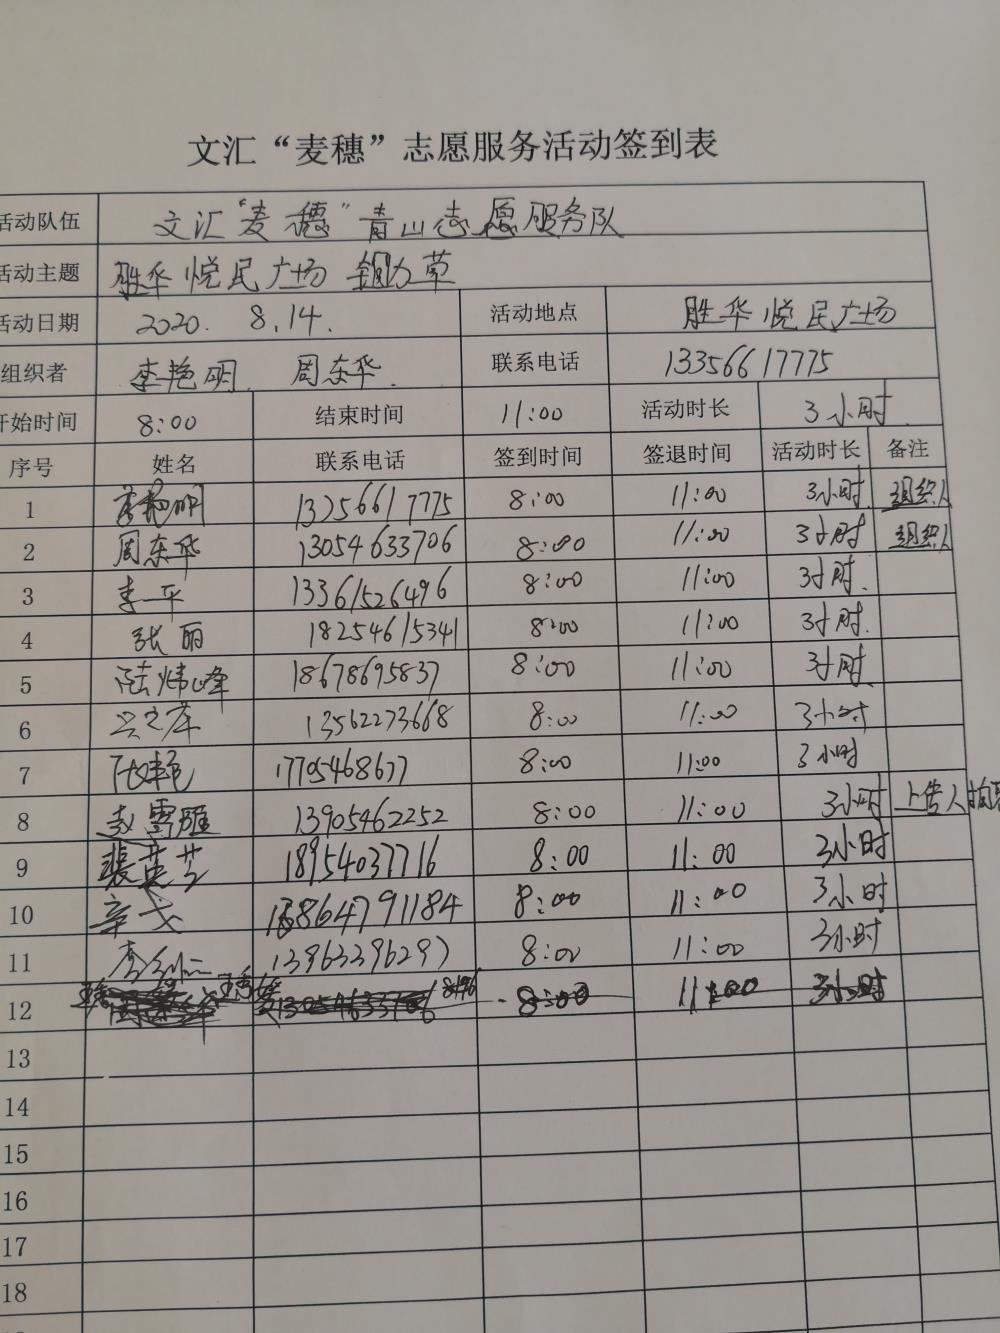 文汇“麦穗”志愿服务活动签到表
活动队伍 文汇“麦穗”青山志愿服务队
活动主题 胜华悦民广场 锄草
活动日期 2020. 8.14. 活动地点 胜华悦民广场
组织者 李艳明. 周东华. 联系电话 13356617775
开始时间 8:00 结束时间 11:00 活动时长 3小时.
序号 姓名 联系电话 签到时间 签退时间 活动时长 备注
1 李艳明 13256617775 8:00 11:00 3小时. 组织人
2 周东华 13054633706 8:00 11:00 3小时 组织人
3 李一平 13361526496 8:00 11:00 3小时.
4 张丽 18254615341 8:00 11:00 3小时.
5 陆炜峰 18678695837 8:00 11:00 3小时.
6 13562273668 8:00 11:00 3小时
7 17705468677 8:00 11:00 3小时
8 赵雪雁 13905462252 8:00 11:00 3小时 上传人
9 裴英芝 18954037716 8:00 11:00 3小时
10 辛戈 13864791184 8:00 11:00 3小时
11 13963296297 8:00 11:00 3小时
12 8:00 11:00 3小时
13
14
15
16
17
18